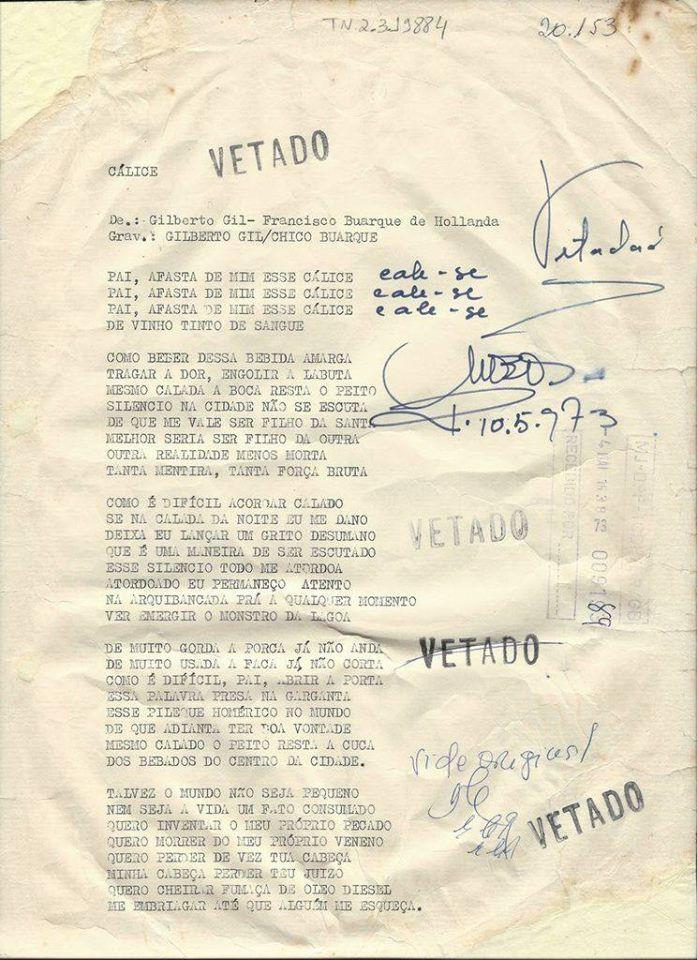 TN.2.3.19884
20./53
VETADO
CÁLICE
De.: Gilberto Gil- Francisco Buarque de Hollanda
Grav.: GILBERTO GIL/CHICO BUARQUE
Vetado
PAI, AFASTA DE MIM ESSE CÁLICE cale-se
PAI, AFASTA DE MIM ESSE CÁLICE cale-se
PAI, AFASTA DE MIM ESSE CÁLICE cale-se
DE VINHO TINTO DE SANGUE
COMO BEBER DESSA BEBIDA AMARGA
TRAGAR A DOR, ENGOLIR A LABUTA
MESMO CALADA A BOCA RESTA O PEITO
SILENCIO NA CIDADE NÃO SE ESCUTA
DE QUE ME VALE SER FILHO DA SANTA
10.5.973
MELHOR SERIA SER FILHO DA OUTRA
OUTRA REALIDADE MENOS MORTA
TANTA MENTIRA, TANTA FORÇA BRUTA
COMO É DIFÍCIL ACORDAR CALADO
SE NA CALADA DA NOITE EU ME DANO
DEIXA EU LANÇAR UM GRITO DESUMANO
QUE É UMA MANEIRA DE SER ESCUTADO
ESSE SILENCIO TODO ME ATORDOA
ATORDOADO EU PERMANEÇO ATENTO
NA ARQUIBANCADA PRÁ A QUALQUER MOMENTO
VER EMERGIR O MONSTRO DA LAGOA
VETADO
009189
DE MUITO GORDA A PORCA JÁ NÃO ANDA
DE MUITO USADA A FACA JÁ NÃO CORTA
COMO É DIFÍCIL, PAI, ABRIR A PORTA
ESSA PALAVRA PRESA NA GARGANTA
ESSE PILEQUE HOMÉRICO NO MUNDO
DE QUE ADIANTA TER BOA VONTADE
MESMO CALADO O PEITO RESTA A CUCA
DOS BEBADOS DO CENTRO DA CIDADE.
VETADO
vide original
TALVEZ O MUNDO NÃO SEJA PEQUENO
NEM SEJA A VIDA UM FATO CONSUMADO
QUERO INVENTAR O MEU PRÓPRIO PECADO
QUERO MORRER DO MEU PRÓPRIO VENENO
QUERO PERDER DE VEZ TUA CABEÇA
MINHA CABEÇA PERDER TEU JUIZO
QUERO CHEIRAR FUMAÇA DE ÓLEO DIESEL
ME EMBRIAGAR ATÉ QUE ALGUÉM ME ESQUEÇA.
VETADO